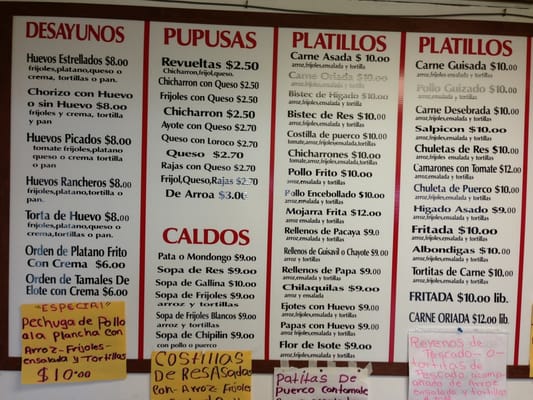 DESAYUNOS
Huevos Estrellados $8.00
frijoles,platano,queso o
crema, tortillas o pan.
Chorizo con Huevo
o sin Huevo $8.00
frijoles y crema, tortilla
y pan
Huevos Picados $8.00
tomate frijoles,platano
queso o crema tortilla
o pan
Huevos Rancheros $8.00
frijoles,platano,tortilla o
pan.
Torta de Huevo $8.00
frijoles,platano,queso o
crema,tortillas o pan.
Orden de Platano Frito
Con Crema $6.00
Orden de Tamales De
Elote con Crema $6.00
"ESPECIAL"
Pechuga de Pollo
a la plancha Con
Arroz-Frijoles-
ensalada y Tortillas
$10.00
PUPUSAS
Revueltas $2.50
Chicharron,frijol,queso.
Chicharron con Queso $2.50
Frijoles con Queso $2.50
Chicharron $2.50
Ayote con Queso $2.70
Queso con Loroco $2.70
Queso $2.70
Rajas con Queso $2.70
Frijol,Queso,Rajas $2.70
De Arroa $3.00
CALDOS
Pata o Mondongo $9.00
Sopa de Res $9.00
Sopa de Gallina $10.00
Sopa de Frijoles $9.00
arroz y tortillas
Sopa de Frijoles Blancos $9.00
arroz y tortillas
Sopa de Chipilin $9.00
con pollo o puerco
COSTILLAS
de RES ASADAS
Con-Arroz Frijoles
PLATILLOS
Carne Asada $10.00
arroz,frijoles,ensalada y tortillas
Carne Oriada $10.00
arroz,frijoles,ensalada y tortillas
Bistec de Higado $10.00
arroz,frijoles,ensalada y tortilla
Bistec de Res $10.00
arroz,frijoles,ensalada y tortillas
Costilla de puerco $10.00
tomate,arroz,frijoles,ensalada y tortilla
Chicharrones $10.00
arroz,frijoles,ensalada y tortillas
Pollo Frito $10.00
arroz,ensalada y tortillas
Pollo Encebollado $10.00
arroz,ensalada y tortillas
Mojarra Frita $12.00
arroz,ensalada y tortillas
Rellenos de Pacaya $9.00
arroz y ensalada
Rellenos de Guisavil o Chayote $9.00
arroz y ensalada
Rellenos de Papa $9.00
arroz y ensalada
Chilaquilas $9.00
arroz y ensalada
Ejotes con Huevo $9.00
arroz,ensalada y tortillas
Papas con Huevo $9.00
arroz,ensalada y tortillas
Flor de Isote $9.00
arroz,frijoles,ensalada y tortillas
Patitas De
Puerco con tomate
PLATILLOS
Carne Guisada $10.00
arroz,frijoles,ensalada y tortillas
Pollo Guizado $10.00
arroz,ensalada y tortillas
Carne Desebrada $10.00
arroz,frijoles,ensalada y tortillas
Salpicon $10.00
arroz,frijoles,ensalada y tortillas
Chuletas de Res $10.00
arroz, frijoles ensalada y tortillas
Camarones con Tomate $12.00
arroz,ensalada y tortillas
Chuleta de Puerco $10.00
arroz,ensalada y tortillas
Higado Asado $9.00
arroz,frijoles,ensalada y tortillas
Fritada $10.00
arroz,frijoles,ensalada y tortillas
Albondigas $10.00
arroz,ensalada y tortillas
Tortitas de Carne $10.00
arroz,ensalada y tortillas
FRITADA $10.00 lib.
CARNE ORIADA $12.00 lb.
Rellenos de
Pescado - o-
tortitas de
Pescado
de Arroz
ensalada y tortillas